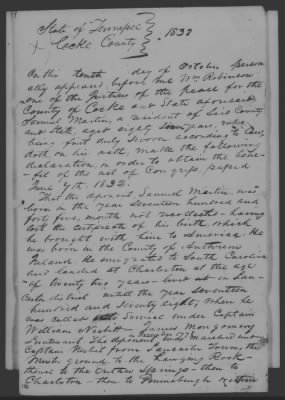 State of Tennessee
Cocke County } 1832
On this tenth day of October person
ally appeared before me Wm Robinson
one of the Justices of the peace for the
County of Cocke and State aforesaid
Samuel Martin, a resident of said County
and State, aged eighty seven years, who
being first duly sworn according to Law,
doth on his oath, make the following
declaration, in order to obtain the bene-
fit of the act of Congress passed
June 7th 1832.
That this deponent, Samuel Martin, was
born in the year seventeen hundred and
forty five, month not recollected - having
lost the certificate of his birth which
he brought with him to America. He
was born in the County of Antrim
Ireland. He emigrated to South Carolina
and landed at Charleston at the age
of twenty two years - lived at or in Lan-
caster district untill the year seventeen
hundred and seventy eight, when he
was called into Service under Captain
William Nesbit - James Montgomery
Lieutenant. The deponent marched under
Captain Nesbit from Lancaster Town, the
Mush ground to the Hanging Rock -
thence to the Springs - then to
Charleston - then to